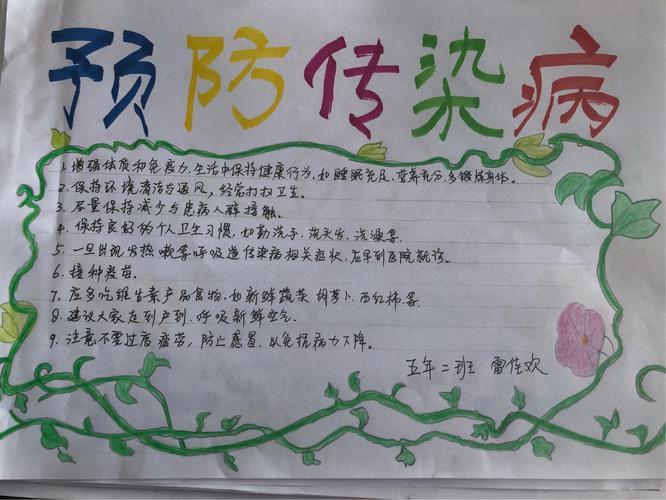 预防传染病
1. 增强体质和免疫力.生活中保持健康行为,如睡眠充足,营养充分,多锻炼身体。
2. 保持环境清洁与通风,经常打扫卫生。
3. 尽量保持减少与患病人群接触。
4. 保持良好的个人卫生习惯,如勤洗手、洗头发、洗澡等.
5. 一旦出现发热咳等呼吸道传染病相关症状,应早到医院就诊。
6. 接种疫苗.
7. 应多吃维生素产品食物.如新鲜蔬菜 胡萝卜、西红柿等
8. 建议大家走到户到,呼吸新鲜空气.
9. 注意不要过度疲劳,防止感冒,以免抗病力下降。
五年二班 雷佳欢